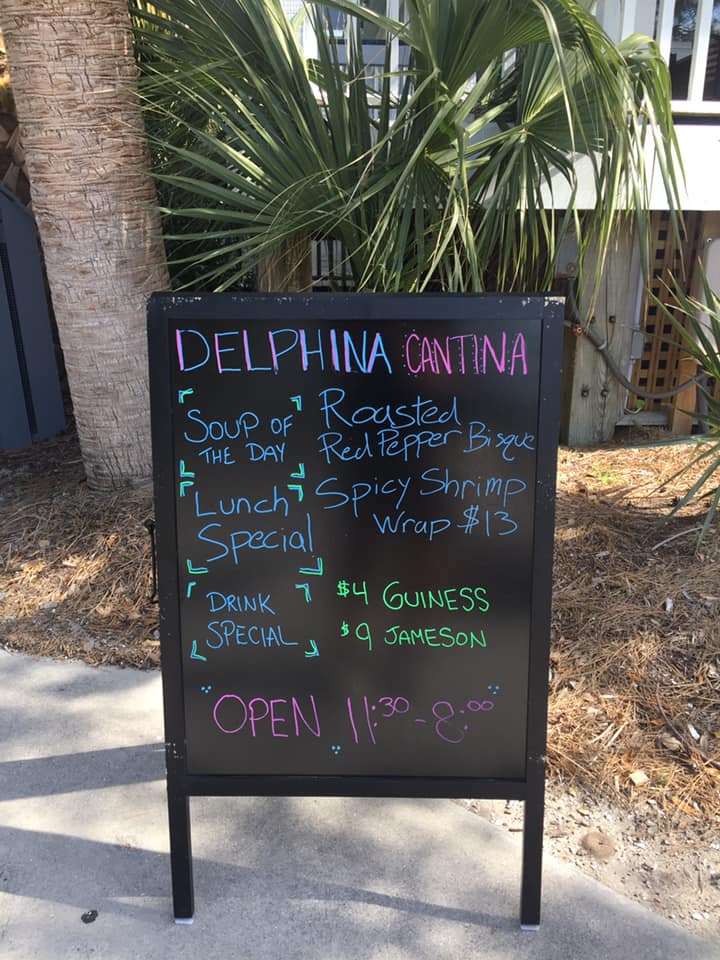 DELPHINA CANTINA
SOUP OF
THE DAY
Roasted
Red Pepper Bisque
Lunch
Special
Spicy Shrimp
Wrap $13
DRINK
SPECIAL
$4 GUINESS
$9 JAMESON
OPEN 11:30 - 8:00